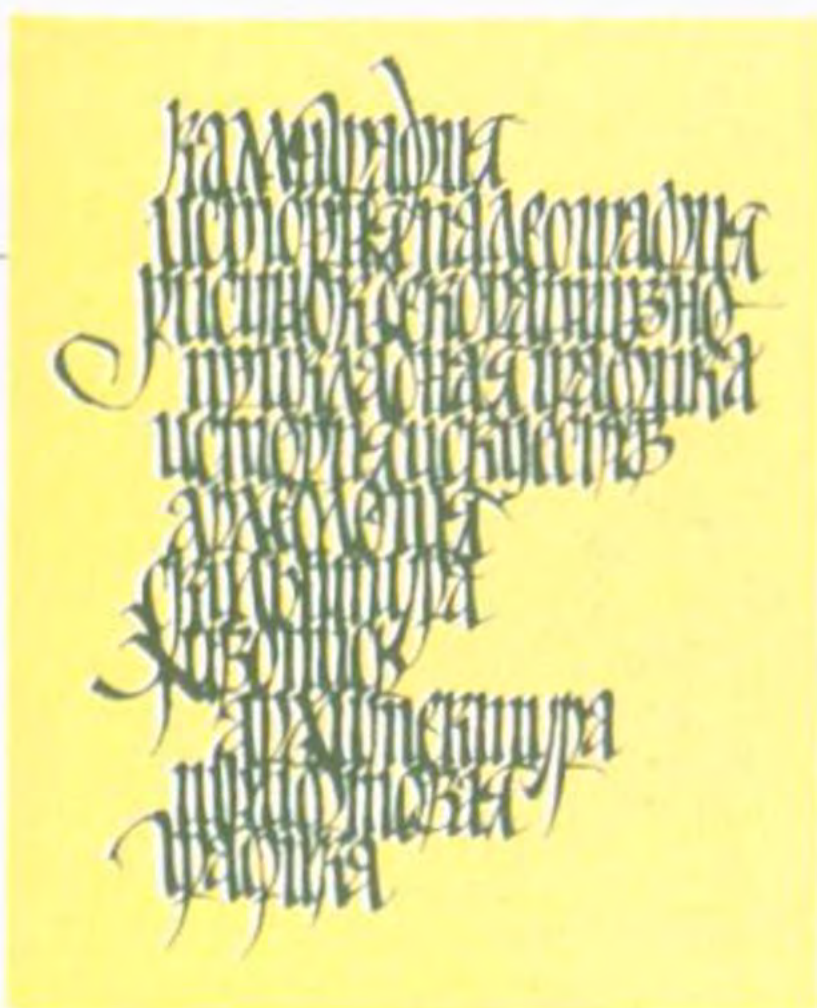 каллиграфия
история палеография
рисунок декоративно-
прикладная графика
история искусств
археология
скульптура
живопись
архитектура
шрифтовая
графика